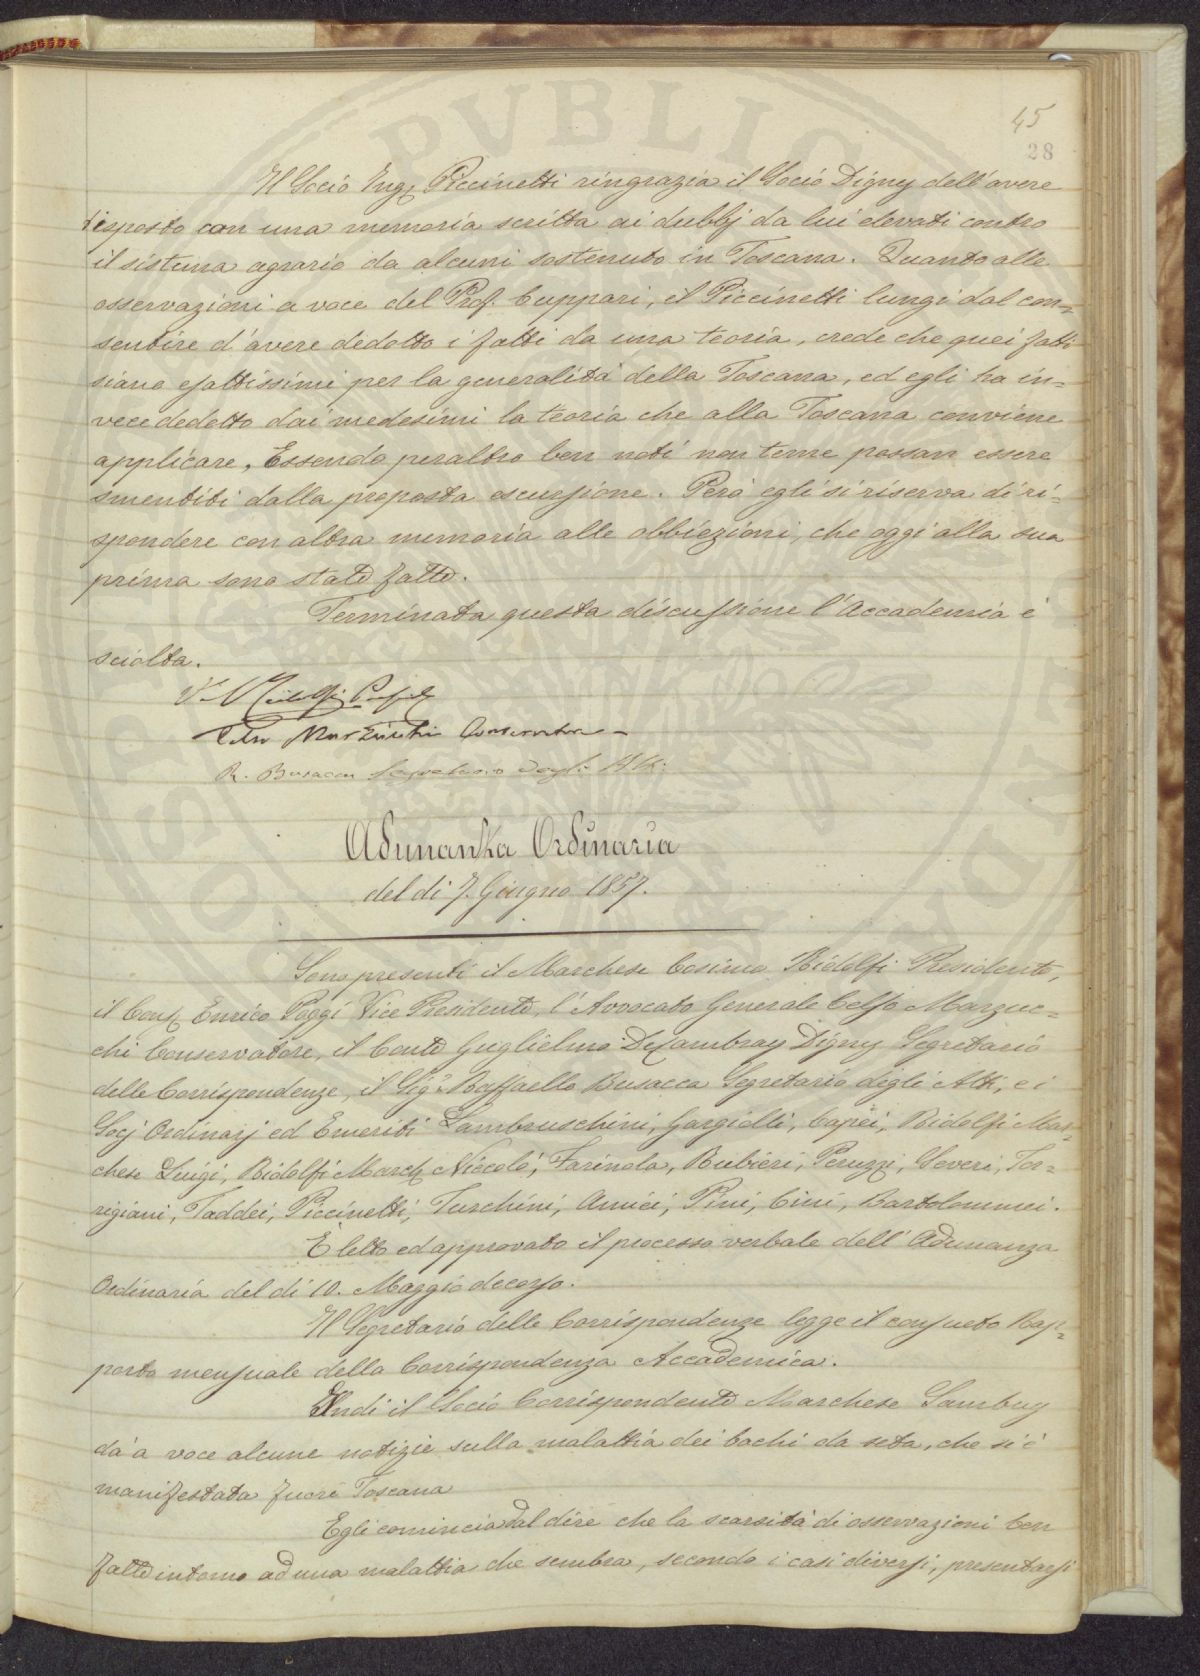 45
28
Il Socio Ing. Piccinetti ringrazia il Socio Digny dell'avere
risposto con una memoria scritta ai dubbj da lui elevati contro
il sistema agrario da alcuni sostenuto in Toscana. Quanto alle
osservazioni a voce del Prof. Cuppari, il Piccinetti lungi dal con=
sentire d'avere dedotto i fatti da una teoria, crede che quei fatti
siano esattissimi per la generalità della Toscana, ed egli ha in=
vece dedotto dai medesimi la teoria che alla Toscana conviene
applicare. Essendo peraltro ben noti non teme possan essere
smentiti dalla proposta escursione. Però egli si riserva di ri=
spondere con altra memoria alle obbiezioni, che oggi alla sua
prima sono state fatte.
Terminata questa discussione l'Accademia è
sciolta.
Conservatore
R. Busacca Segretario degli Atti
Adunanza Ordinaria
del di 7. Giugno 1857.
Sono presenti il Marchese Cosimo Ridolfi Presidente,
il Enrico Poggi Vice Presidente, l'Avvocato Generale Celso Marzuc=
chi Conservatore, il Conte Guglielmo DeCambray Digny Segretario
delle Corrispondenze, il Sigr. Raffaello Busacca Segretario degli Atti, e i
Socj Ordinarj ed Emeriti Lambruschini, Gargiolli, Capei, Ridolfi Mar=
chese Luigi, Ridolfi March. Niccolò, Farinola, Rubieri, Peruzzi, Severi, Tor=
rigiani, Taddei, Piccinetti, Turchini, Amici, Pini, Cini, Bartolommei.
E letto ed approvato il processo verbale dell'Adunanza
Ordinaria del dì 10. Maggio decorso.
Il Segretario delle Corrispondenze legge il consueto Rap=
porto mensuale della Corrispondenza Accademica.
Indi il Socio Corrispondente Marchese Sambuy
dà a voce alcune notizie sulla malattia dei bachi da seta, che si è
manifestata fuori Toscana
Egli comincia dal dire che la scarsità di osservazioni ben
fatte intorno ad una malattia che sembra, secondo i casi diversi, presentarsi